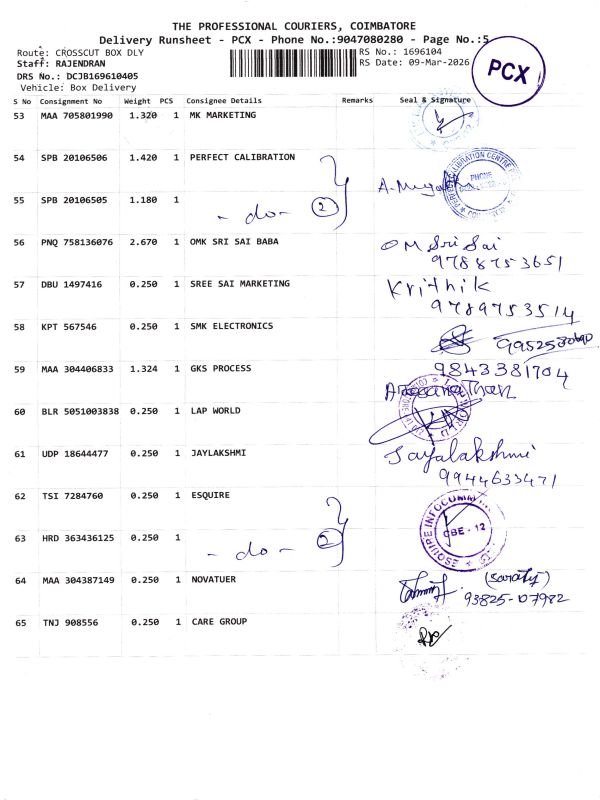 THE PROFESSIONAL COURIERS, COIMBATORE
Delivery Runsheet - PCX - Phone No.:9047080280 - Page No.:5
Route: CROSSCUT BOX DLY
RS No.: 1696104
Staff: RAJENDRAN
RS Date: 09-Mar-2026
DRS No.: DCJB169610405
Vehicle: Box Delivery
PCX
S No Consignment No Weight PCS Consignee Details Remarks Seal & Signature
53 MAA 705801990 1.320 1 MK MARKETING
54 SPB 20106506 1.420 1 PERFECT CALIBRATION
55 SPB 20106505 1.180 1 - do - 2
56 PNQ 758136076 2.670 1 OMK SRI SAI BABA OM Sri Sai
9788753651
57 DBU 1497416 0.250 1 SREE SAI MARKETING Krithik
9789753514
58 KPT 567546 0.250 1 SMK ELECTRONICS
59 MAA 304406833 1.324 1 GKS PROCESS 9843381704
60 BLR 5051003838 0.250 1 LAP WORLD
61 UDP 18644477 0.250 1 JAYLAKSHMI Jayalakshmi
9944633471
62 TSI 7284760 0.250 1 ESQUIRE
CBE - 12
63 HRD 363436125 0.250 1 - do - 2
64 MAA 304387149 0.250 1 NOVATUER (Saraty)
93825-07982
65 TNJ 908556 0.250 1 CARE GROUP